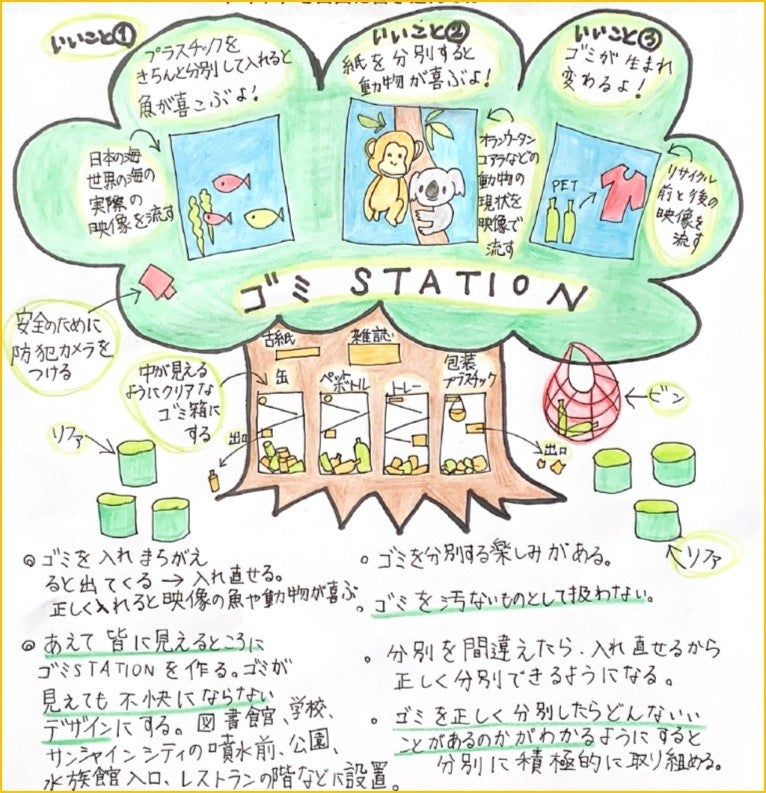 いいこと①
プラスチックを
きちんと分別して入れると
魚が喜こぶよ!
いいこと②
紙を分別すると
動物が喜ぶよ!
いいこと③
ゴミが生まれ
変わるよ!
日本の海
世界の海の
実際の
映像を流す
オランウータン
コアラなどの
動物の
現状を
映像で
流す
PET
リサイクル
前と後の
映像を
流す
ゴミ STATION
安全のために
防犯カメラを
つける
中が見える
ようにクリアな
ゴミ箱に
する
古紙
雑誌
缶
ペット
ボトル
トレー
包装
プラスチック
出口
出口
ビン
リファ
リファ
◎ ゴミを入れまちがえ
ると出てくる → 入れ直せる。
正しく入れると映像の魚や動物が喜ぶ。
◎ あえて皆に見えるところに
ゴミSTATIONを作る。ゴミが
見えても不快にならない
デザインにする。図書館、学校、
サンシャインシティの噴水前、公園、
水族館入口、レストランの階などに設置。
。ゴミを分別する楽しみがある。
ゴミを汚ないものとして扱わない。
。分別を間違えたら、入れ直せるから
正しく分別できるようになる。
。ゴミを正しく分別したらどんないい
ことがあるのかがわかるようにすると
分別に積極的に取り組める。